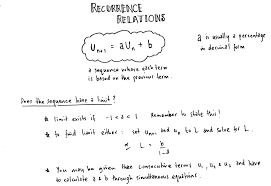 RECURRENCE
RELATIONS
Uₙ₊₁ = aUₙ + b
a is usually a percentage
in decimal form
a sequence where each term
is based on the previous term.
Does the sequence have a limit?
* limit exists if -1 < a < 1 Remember to state this!
* to find limit either: set Uₙ₊₁ and Uₙ to L and solve for L.
or L = b/(1-a)
* You may be given three consecutive terms U₁, U₂ & U₃ and have
to calculate a & b through simultaneous equations.